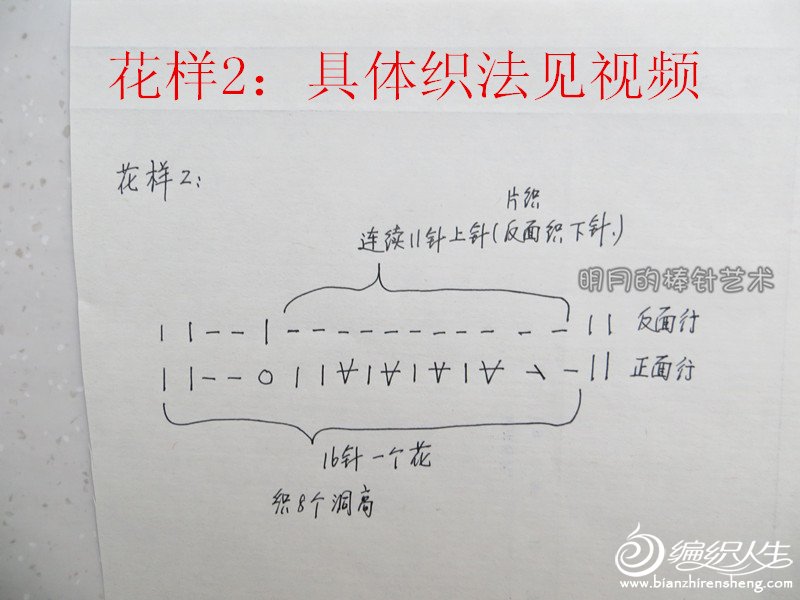 花样2：具体织法见视频
花样2：
片织
连续11针上针(反面织下针.)
明月的棒针艺术
| | – – | – – – – – – – – – – – | | 反面行
| | – – O | | ∀ | ∀ | ∀ | ∀ – | | 正面行
16针一个花
织8个洞高
编织人生
www.bianzhirensheng.com